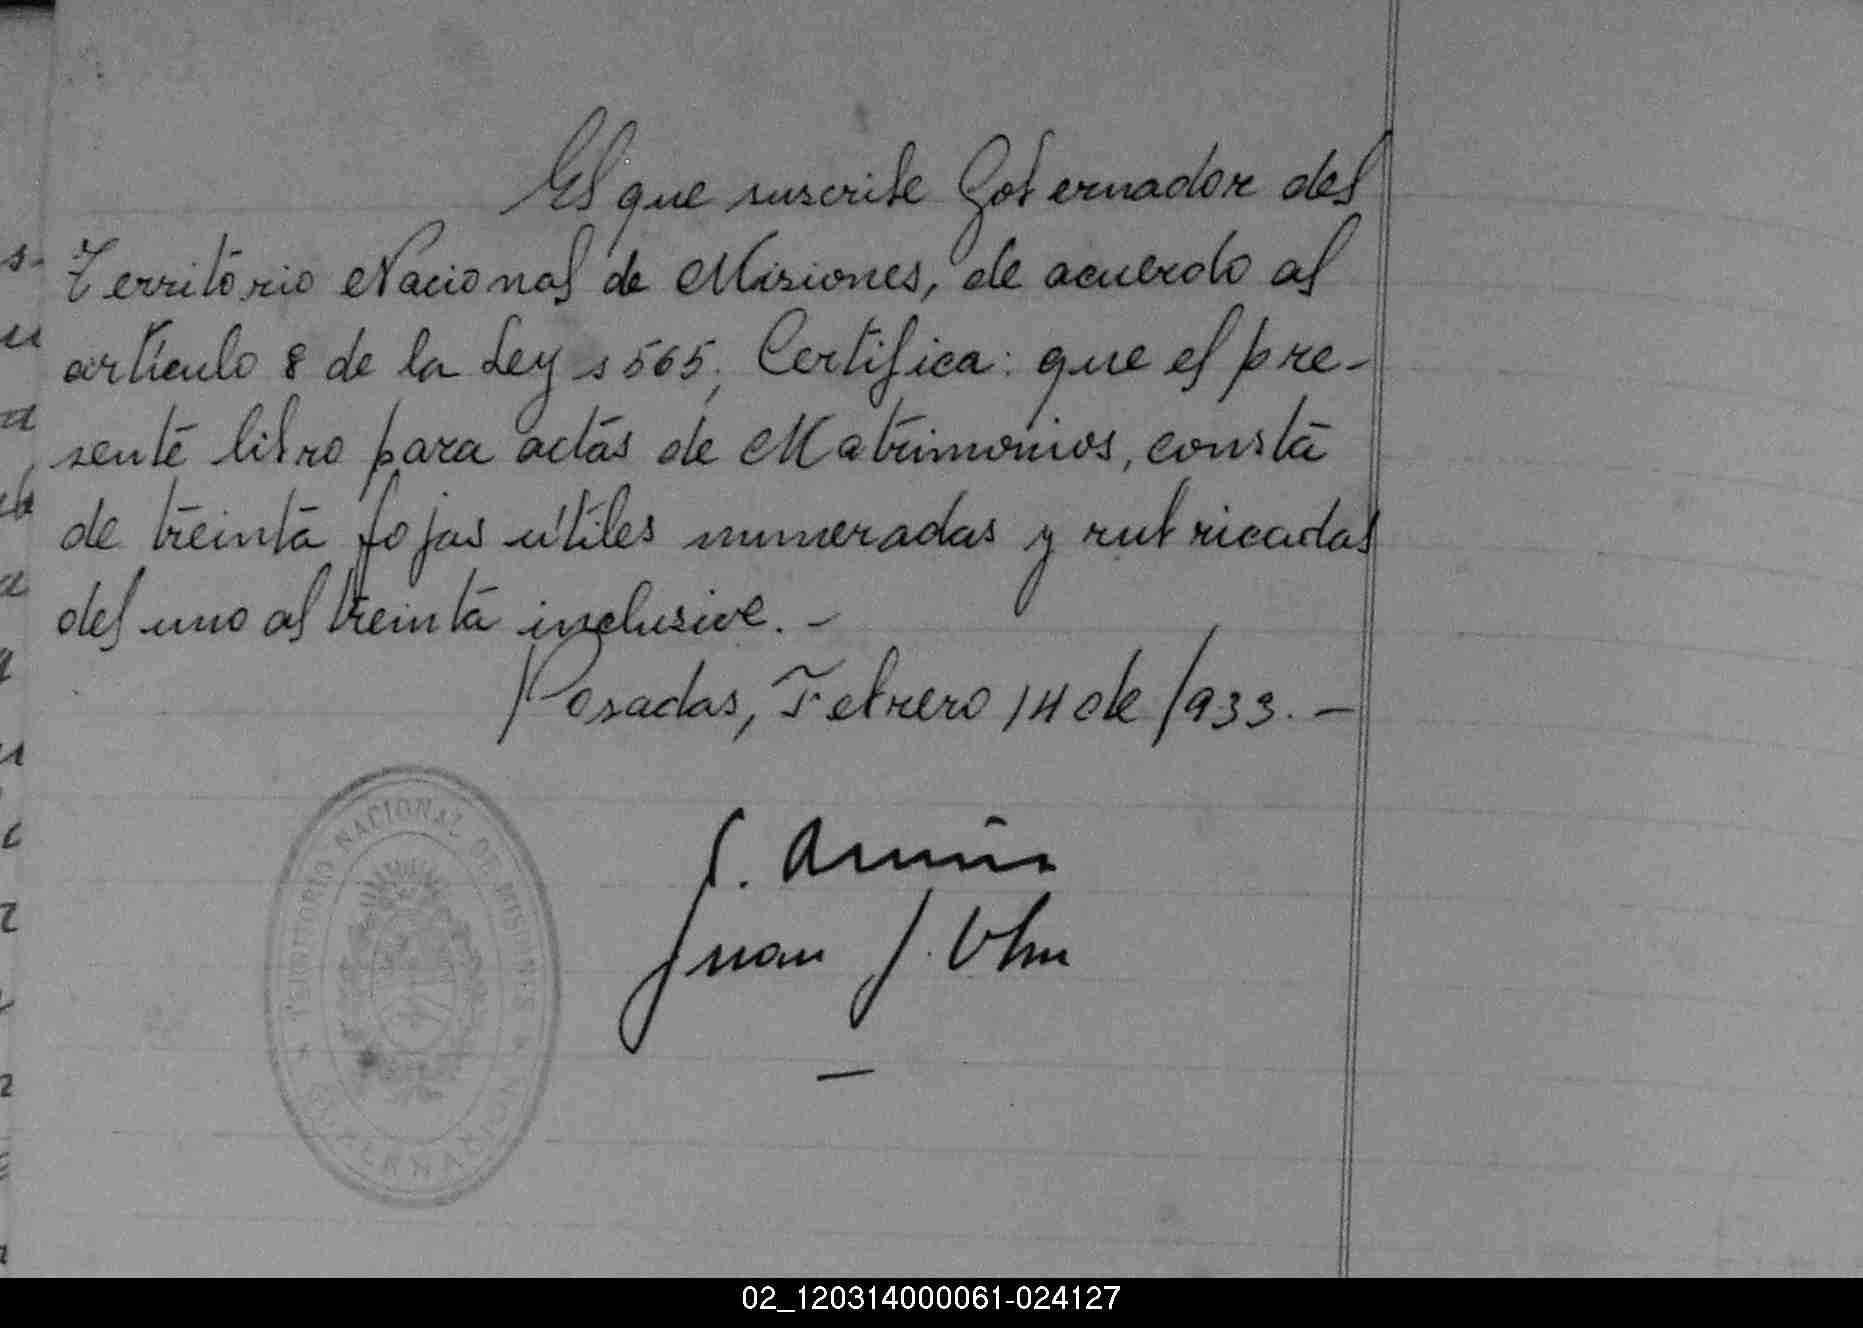 El que suscribe Gobernador del
Territorio Nacional de Misiones, de acuerdo al
artículo 8 de la Ley 1565, Certifica: que el pre-
sente libro para actas de Matrimonios, consta
de treinta fojas útiles numeradas y rubricadas
del uno al treinta inclusive. -
Posadas, Febrero 14 de 1933. -
TERRITORIO NACIONAL DE MISIONES
GOBERNACION
Juan J.
02_120314000061-024127